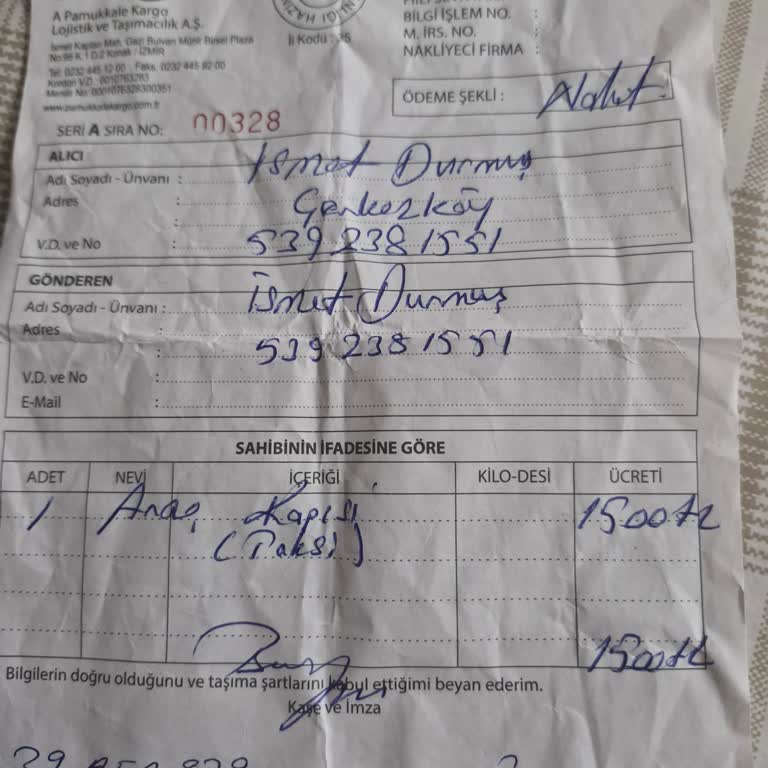 A Pamukkale Kargo
Lojistik ve Taşımacılık A.Ş.
İsmet Kaptan Mah. Gazi Bulvarı Münir Birsel Plaza
Tel: 0232 445 12 00 - Faks: 0232 445 92 00
www.pamukkalekargo.com.tr
İl Kodu : 35
BİLGİ İŞLEM NO. :
M. İRS. NO. :
NAKLİYECİ FİRMA :
ÖDEME ŞEKLİ :
SERİ A SIRA NO: 00328
ALICI
Adı Soyadı - Ünvanı : İsmet Durmuş
Adres : Çerkezköy
V.D. ve No : 539 238 1551
GÖNDEREN
Adı Soyadı - Ünvanı : İsmet Durmuş
Adres
: 539 238 1551
V.D. ve No :
E-Mail :
SAHİBİNİN İFADESİNE GÖRE
ADET NEVİ İÇERİĞİ KİLO-DESİ ÜCRETİ
1 Araç Kapısı 1500 TL
(Taksi)
1500 TL
Bilgilerin doğru olduğunu ve taşıma şartlarını kabul ettiğimi beyan ederim.
Kaşe ve İmza